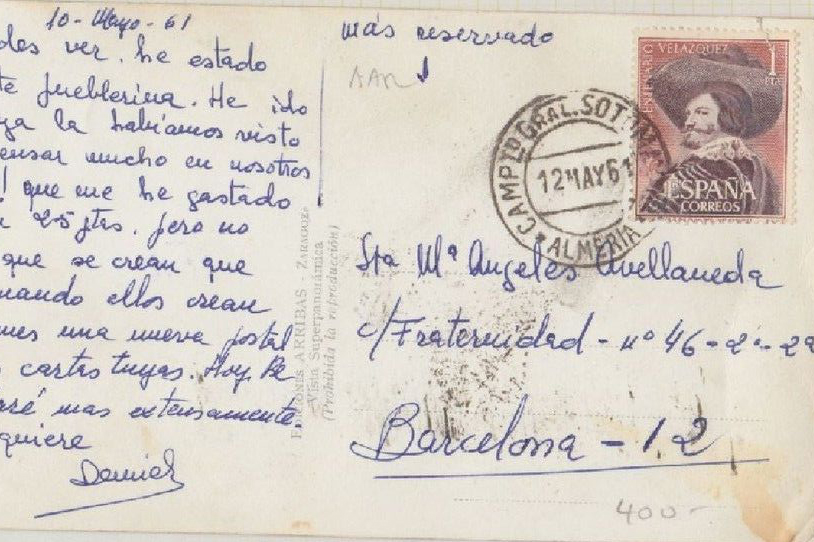 10-Mayo-61
ver. he estado
pueblerina. He ido
ya la habíamos visto
pensar mucho en nosotros
! que me he gastado
25 ptas. pero no
que se crean que
cuando ellos crean
una nueva postal
cartas tuyas. Hoy he
mas extensamente.
quiere
Daniel
más reservado
EDICIONES ARRIBAS - ZARAGOZA
Vista Superpanorámica
(Prohibida la reproducción)
CENTENARIO VELAZQUEZ
1
PTA
ESPAÑA
CORREOS
CAMPTO GRAL. SOTOM
12 MAY 61
* ALMERIA
Sta Mª Angeles Avellaneda
c/Fraternidad - nº 46 - 2º - 2ª
Barcelona - 12
400-